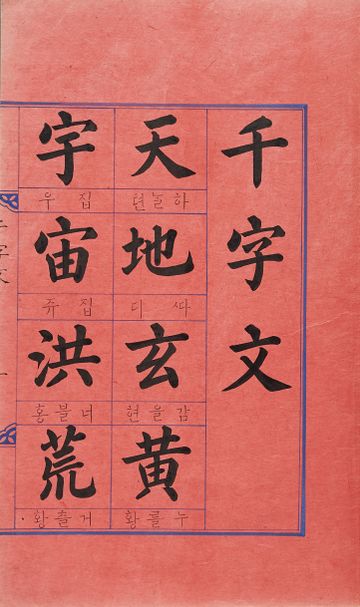 千字文
天
하늘 텬
地
ᄯᅡ 디
玄
감을 현
黄
누를 황
宇
집 우
宙
집 쥬
洪
너블 홍
荒
거츨 황